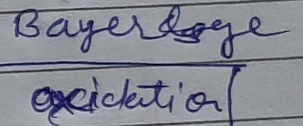 Bayerdoge
oxidation